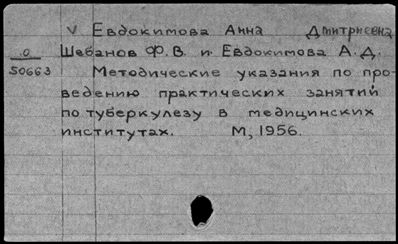 V Евдокимова Анна Дмитриевна
О Шебанов Ф.В. и Евдокимова А.Д.
50663 Методические указания по про-
ведению практических занятий
по туберкулезу в медицинских
институтах. М, 1956.